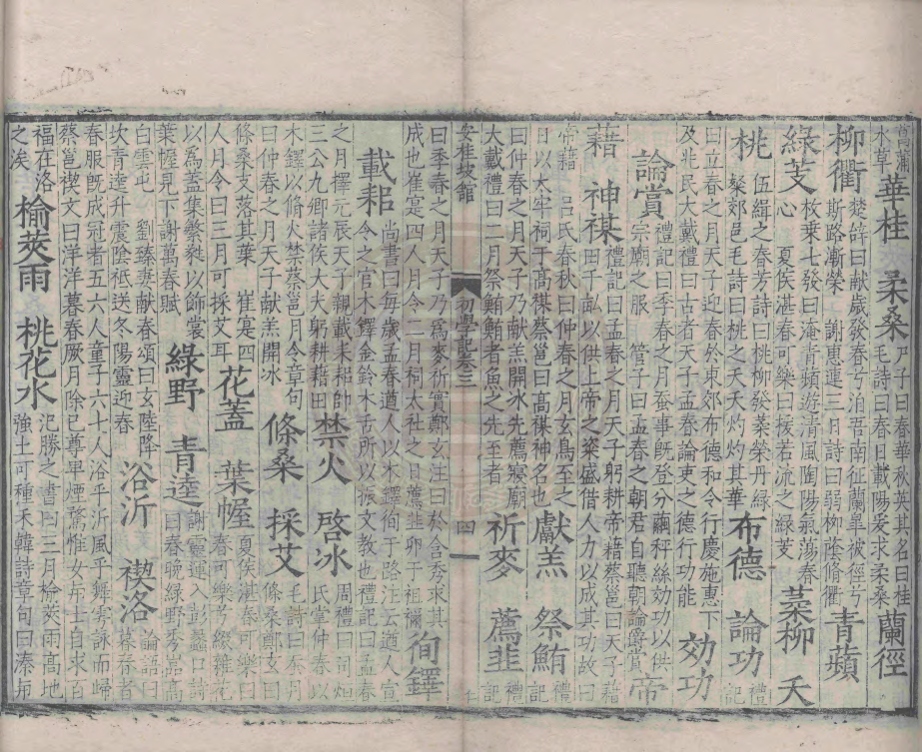 菖蒲水草 華桂 柔桑 尸子曰春華秋英其名曰桂毛詩曰春日載陽爰求柔桑 蘭徑
柳衢 楚辭曰獻歲發春兮汩吾南征蘭皋被徑兮斯路漸榮 謝惠連三月詩曰弱柳蔭脩衢 青蘋
綠芰 枚乘七發曰掩青蘋遊清風陶陽氣蕩春心 夏侯湛春可樂曰援若流之綠芰 葉柳 夭
桃 伍緝之春芳詩曰桃柳發葉榮丹綠粲郊邑毛詩曰桃之夭夭灼灼其華 布德 論功 禮記
曰立春之月天子迎春於東郊布德和令行慶施惠下及兆民大戴禮曰古者天子孟春論吏之德行功能 効功
論賞 禮記曰季春之月蚕事既登分繭秤絲効功以供宗廟之服 管子曰孟春之朝君自聽朝論爵賞 帝
藉 神禖 禮記曰孟春之月天子躬耕帝藉蔡邕曰天子藉田千畝以供上帝之粢盛借人力以成其功故曰
帝藉 呂氏春秋曰仲春之月玄鳥至之日以太牢祠于高禖蔡邕曰高禖神名也 獻羔 祭鮪 禮記
曰仲春之月天子乃獻羔開冰先薦寢廟大戴禮曰二月祭鮪鮪者魚之先至者 祈麥 薦韭 禮記
安桂坡館 初學記卷三 四
曰季春之月天子乃爲麥祈實鄭玄注曰於含秀求其成也崔寔四人月令曰二月祠太社之日薦韭卯于祖禰 徇鐸
載耜 尚書曰每歲孟春遒人以木鐸徇于路注云遒人宣令之官木鐸金鈴木舌所以振文教也禮記曰孟春
之月擇元辰天子親載耒耜帥三公九卿諸侯大夫躬耕藉田 禁火 啓冰 周禮曰司烜氏掌仲春以
木鐸以脩火禁蔡邕月令章句曰仲春之月天子獻羔開冰 條桑 採艾 毛詩曰蚕月條桑鄭玄曰
條桑支落其葉 崔寔四人月令曰三月可採艾耳 花蓋 葉幄 夏侯湛春可樂曰春可樂兮綴雜花
以爲蓋集繁蕤以飾裳葉幄見下謝萬春賦 綠野 青逵 謝靈運入彭蠡口詩曰春晚綠野秀嵓高
白雲屯 劉臻妻獻春頌曰玄陸降坎青逵升震陰祗送冬陽靈迎春 浴沂 禊洛 論語曰暮春者
春服既成冠者五六人童子六七人浴乎沂風乎舞雩詠而歸蔡邕禊文曰洋洋暮春厥月除巳尊卑煙騖惟女与士自求百
福在洛之涘 榆莢雨 桃花水 氾勝之書曰三月榆莢雨高地強土可種禾韓詩章句曰溱洧